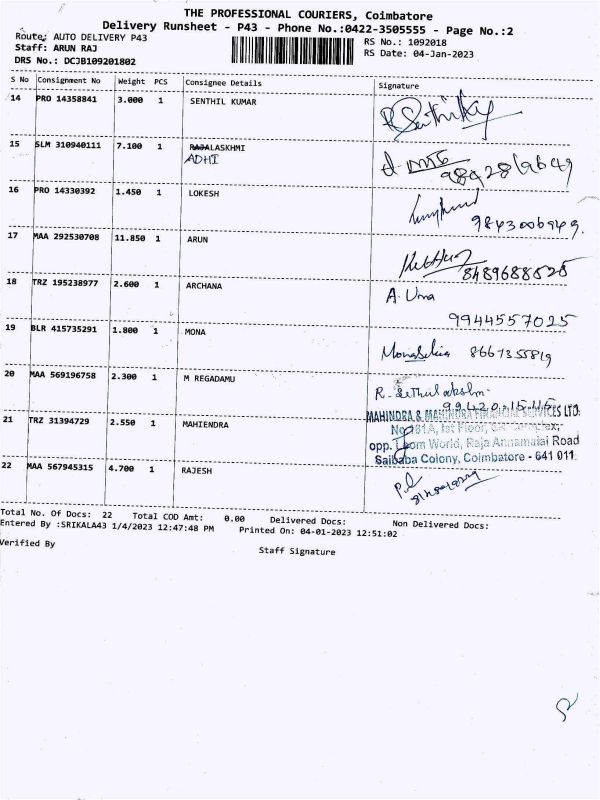 THE PROFESSIONAL COURIERS, Coimbatore
Delivery Runsheet - P43 - Phone No.:0422-3505555 - Page No.:2
Route: AUTO DELIVERY P43
RS No.: 1092018
Staff: ARUN RAJ
RS Date: 04-Jan-2023
DRS No.: DCJB109201802
S No Consignment No Weight PCS Consignee Details Signature
14 PRO 14358841 3.000 1 SENTHIL KUMAR
15 SLM 310940111 7.100 1 RAJALASKHMI
ADHI
9842869649
16 PRO 14330392 1.450 1 LOKESH
9843006949.
17 MAA 292530708 11.850 1 ARUN
8489688525
18 TRZ 195238977 2.600 1 ARCHANA A. Uma
9944557025
19 BLR 415735291 1.800 1 MONA
20 MAA 569196758 2.300 1 M REGADAMU
21 TRZ 31394729 2.550 1 MAHIENDRA
MAHINDRA & MAHINDRA FINANCIAL SERVICES LTD.
1st Floor,
World, Raja Annamalai Road
Saibaba Colony, Coimbatore - 641 011.
22 MAA 567945315 4.700 1 RAJESH
Total No. Of Docs: 22 Total COD Amt: 0.00 Delivered Docs: Non Delivered Docs:
Entered By :SRIKALA43 1/4/2023 12:47:48 PM Printed On: 04-01-2023 12:51:02
Verified By Staff Signature